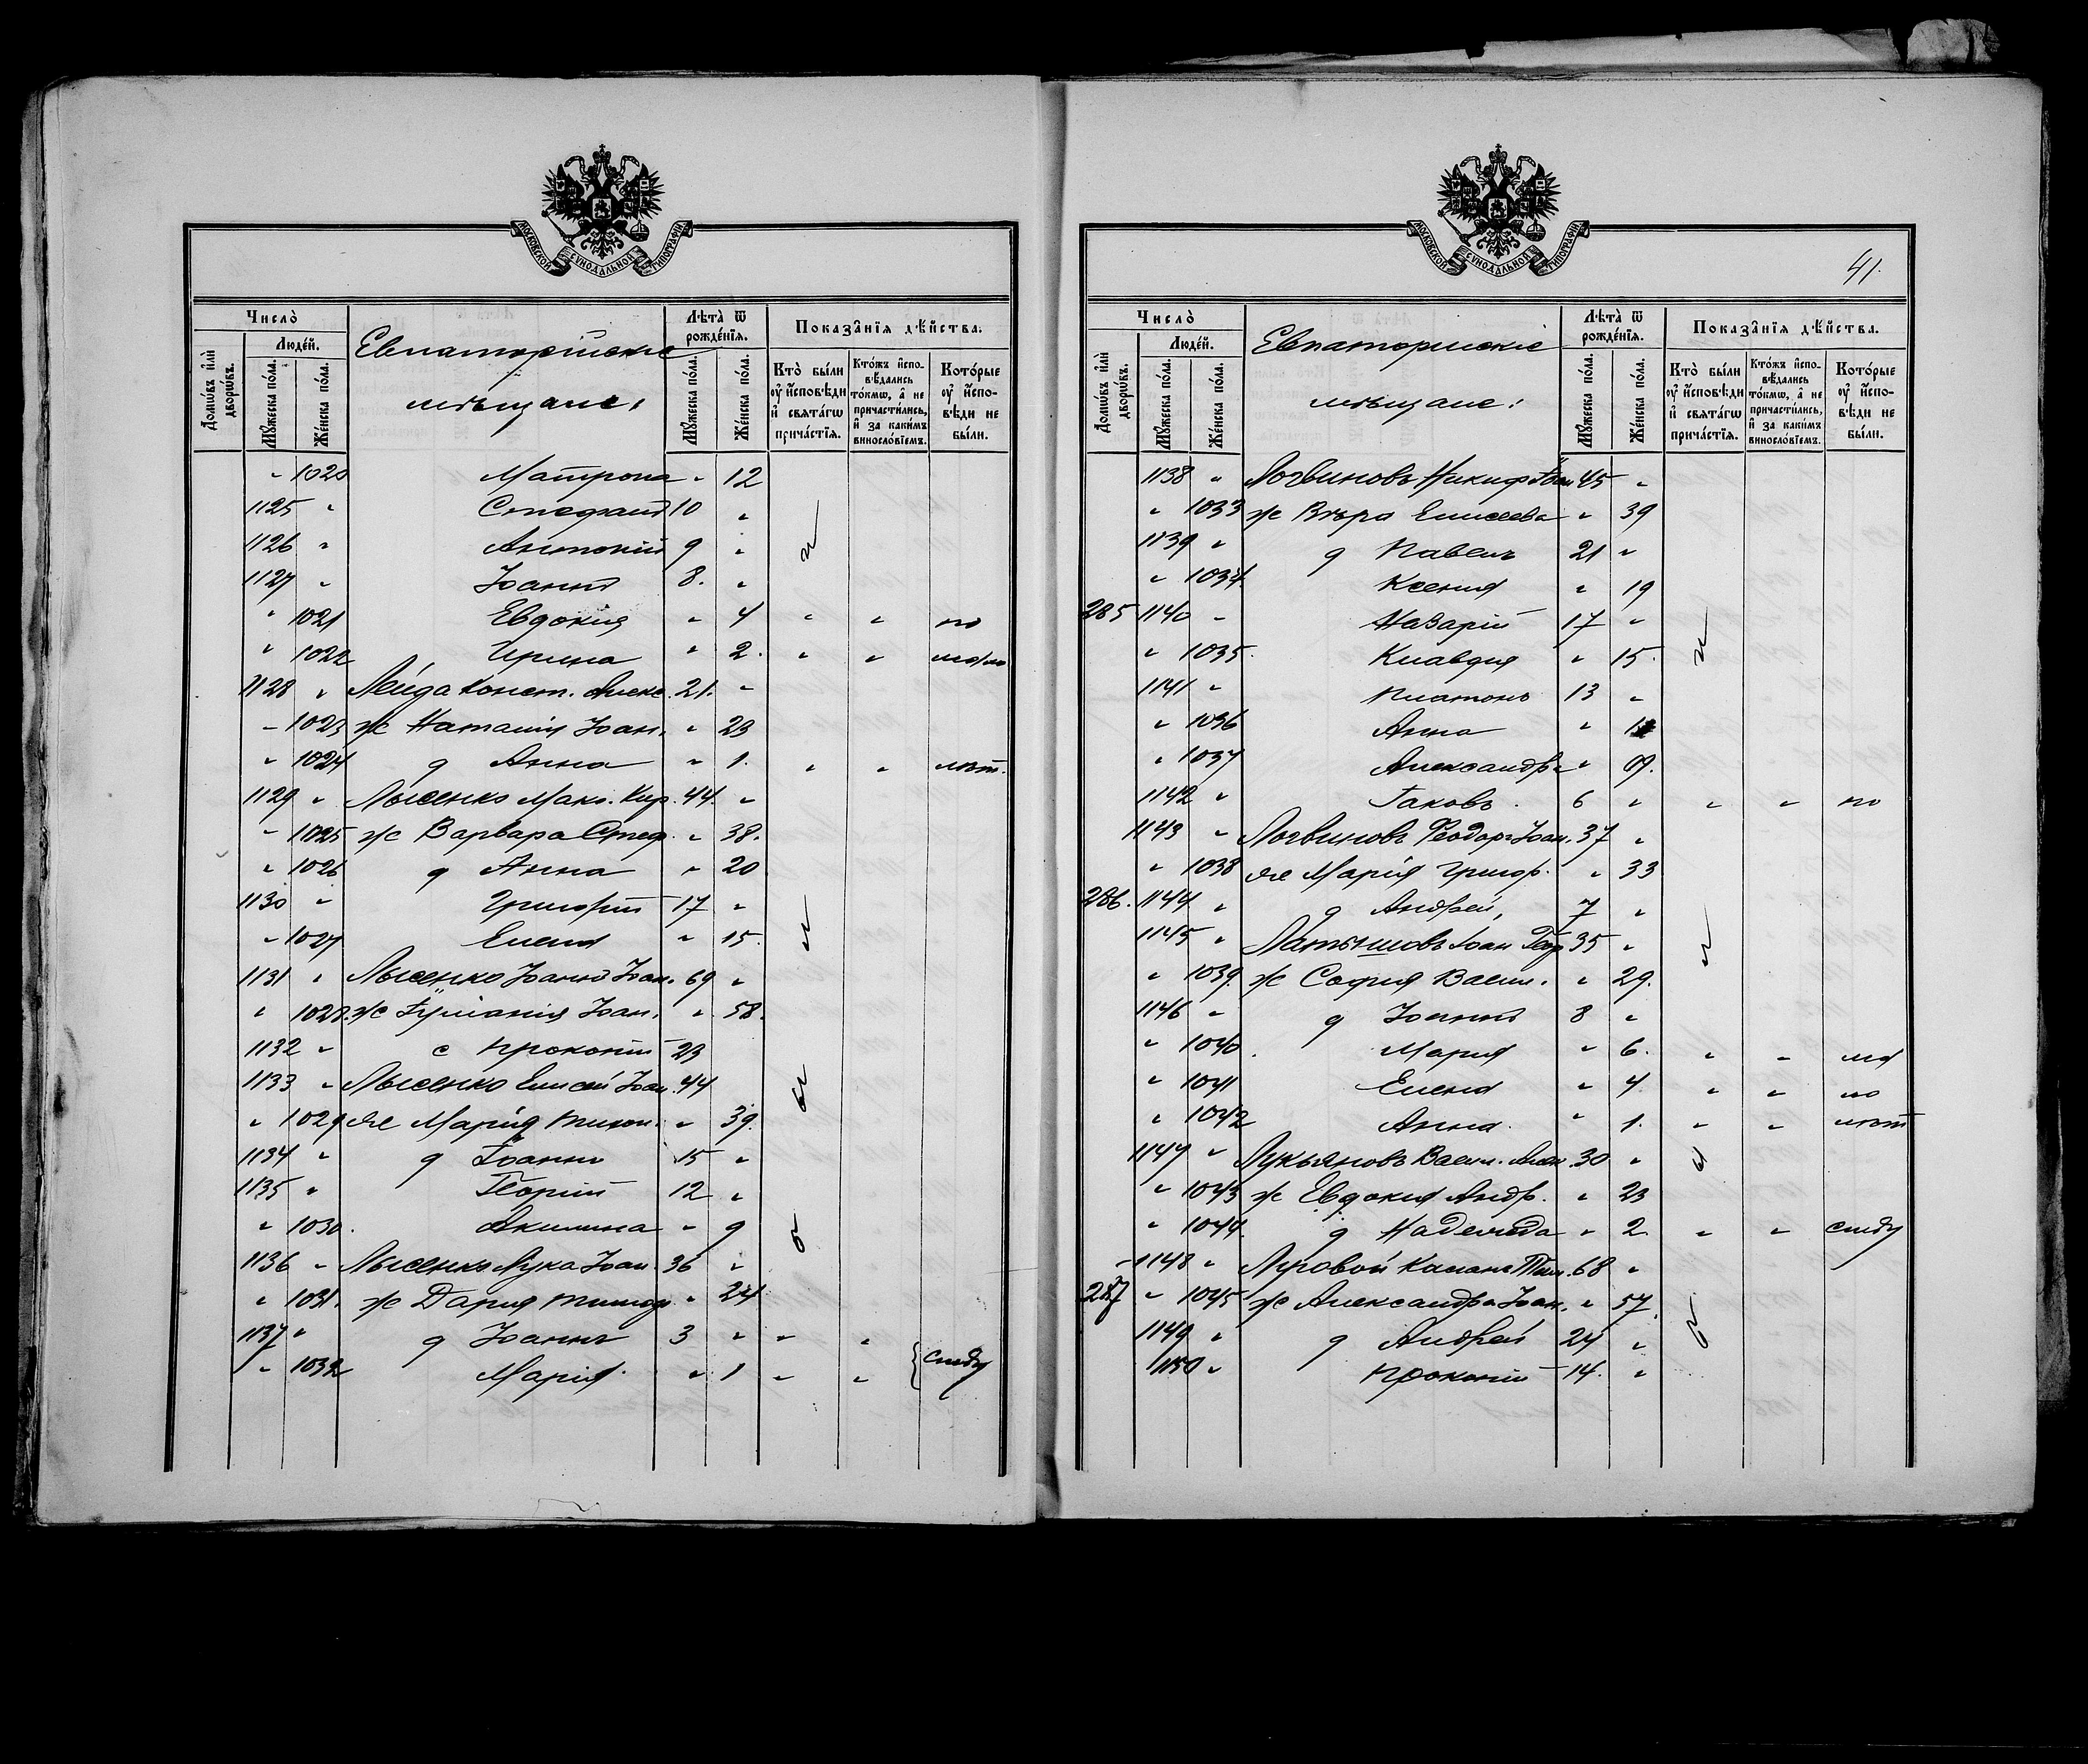 МОСКОВСКОЙ СѴНОДАЛЬНОЙ ТИПОГРАФІИ
Число̀
Людéй.
Домѡ́въ и҆лѝ дворѡ́въ.
Мꙋ́жеска по́ла.
Же́нска по́ла.
Евпаторійскіе
мѣщане:
Лѣ́та ѿ рожде́нїя.
Мꙋ́жеска по́ла.
Же́нска по́ла.
Показа̑нїя дѣ́йства.
Кто̀ бы́ли ᲂу҆ и҆́сповѣди и҆ свята́гѡ прича́стїя.
Кто́жъ и҆спо­вѣ́дались то́кмѡ, а҆ не причасти́лись, и҆ за каки́мъ винослѡ́вїемъ.
Кото́рые ᲂу҆ и҆́спо­вѣди не бы́ли.
" 1020 Матрона " 12
1125 " Стефанъ 10 "
1126 " Антоній 9 "
1127 " Іоаннъ 8. "
" 1021 Евдокія " 4 " " по
" 1022 Ирина " 2. " "
1128 " Лейда Конст. Алекс. 21. "
" 1023 ж Наталія Іоан. " 23
" 1024 д Анна " 1. " " лѣт.
1129 " Лысенко Макс. Кир. 44. "
" 1025 ж Варвара Стеф. " 38.
" 1026 д Анна " 20
1130 " Григорій 17 "
" 1027 Елена " 15.
1131 " Лысенко Іоаннъ Іоан. 69 "
" 1028. ж Іуліанія Іоан. " 58.
1132 " с Прокопій 23
1133 " Лысенко Елисей Іоан. 44
" 1029 ж Марія Тихон. " 39.
1134 " д Іоаннъ 15 "
1135 " Георгій 12 "
" 1030. Акилина " 9
1136 " Лысенко Лука Іоан. 36 "
" 1031. ж Дарія Тимоф. " 24
1137 " д Іоаннъ 3 " " "
" 1032 Марія " 1 " " слѣду
МОСКОВСКОЙ СѴНОДАЛЬНОЙ ТИПОГРАФІИ
41.
Число̀
Людéй.
Домѡ́въ и҆лѝ дворѡ́въ.
Мꙋ́жеска по́ла.
Же́нска по́ла.
Евпаторійскіе
мѣщане:
Лѣ́та ѿ рожде́нїя.
Мꙋ́жеска по́ла.
Же́нска по́ла.
Показа̑нїя дѣ́йства.
Кто̀ бы́ли ᲂу҆ и҆́сповѣди и҆ свята́гѡ прича́стїя.
Кто́жъ и҆спо­вѣ́дались то́кмѡ, а҆ не причасти́лись, и҆ за каки́мъ винослѡ́вїемъ.
Кото́рые ᲂу҆ и҆́спо­вѣди не бы́ли.
1138 " Логвиновъ Никиф. Іоан 45 "
" 1033 ж Вѣра Елисеева " 39
1139 " д Павелъ 21 "
" 1034. Ксенія " 19
285 1140 " Назарій 17 "
" 1035. Клавдія " 15.
1141 " Платонъ 13 "
" 1036 Анна "
" 1037 Александра " 09.
1142 " Іаковъ. 6 " " " по
1143 " Логвиновъ Ѳеодоръ Іоан. 37 "
" 1038 ж Марія Григор. " 33
286. 1144 " д Андрей, 7 "
1145 " Латышовъ Іоан Геор 35 "
" 1039. ж Софія Васил. " 29.
1146 " д Іоаннъ 8 "
" 1040. Марія " 6. " " ма
" 1041 Елена " 4. " " ло
" 1042 Анна. " 1. " " лѣт
1147 " Лукьяновъ Васил. 30 "
" 1043 ж Евдокія Андр. " 23
" 1044. д Надежда " 2 " " слѣду
1148 " Луговой 68 "
287 " 1045 ж Александра Іоан. " 57.
1149 " д Андрей 24 "
1150 " Прокопій 14. "